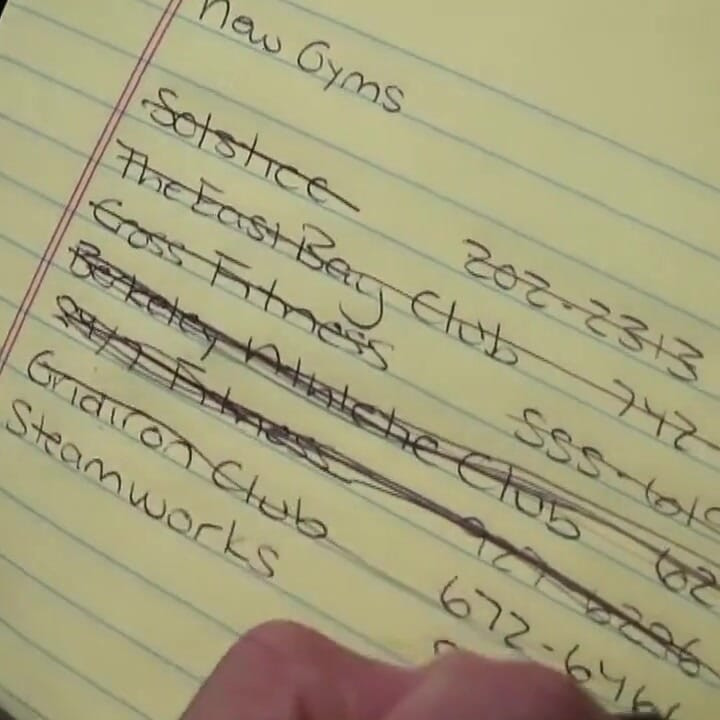 New Gyms
Solstice 202-2313
The East Bay Club 742-
Cross Fitness 555-
Berkeley Athletic Club 62
24/7 Fitness 927 6296
Gridiron Club 672-646
Steamworks